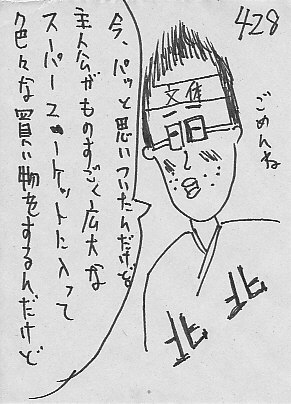 428
ごめんね
今、パッと思いついたんだけど
主人公がものすごく広大な
スーパーマーケットに入って
色々な買い物をするんだけど
北
北